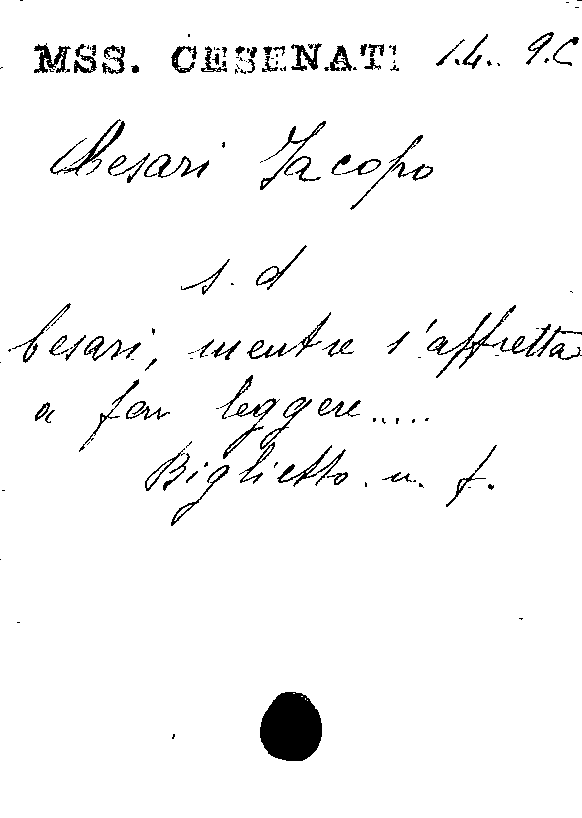 MSS. CESENATI 1.4. 9.C
Cesari Jacopo
s. d
Cesari, mentre s'affretta
a far leggere.....
Biglietto. n. f.